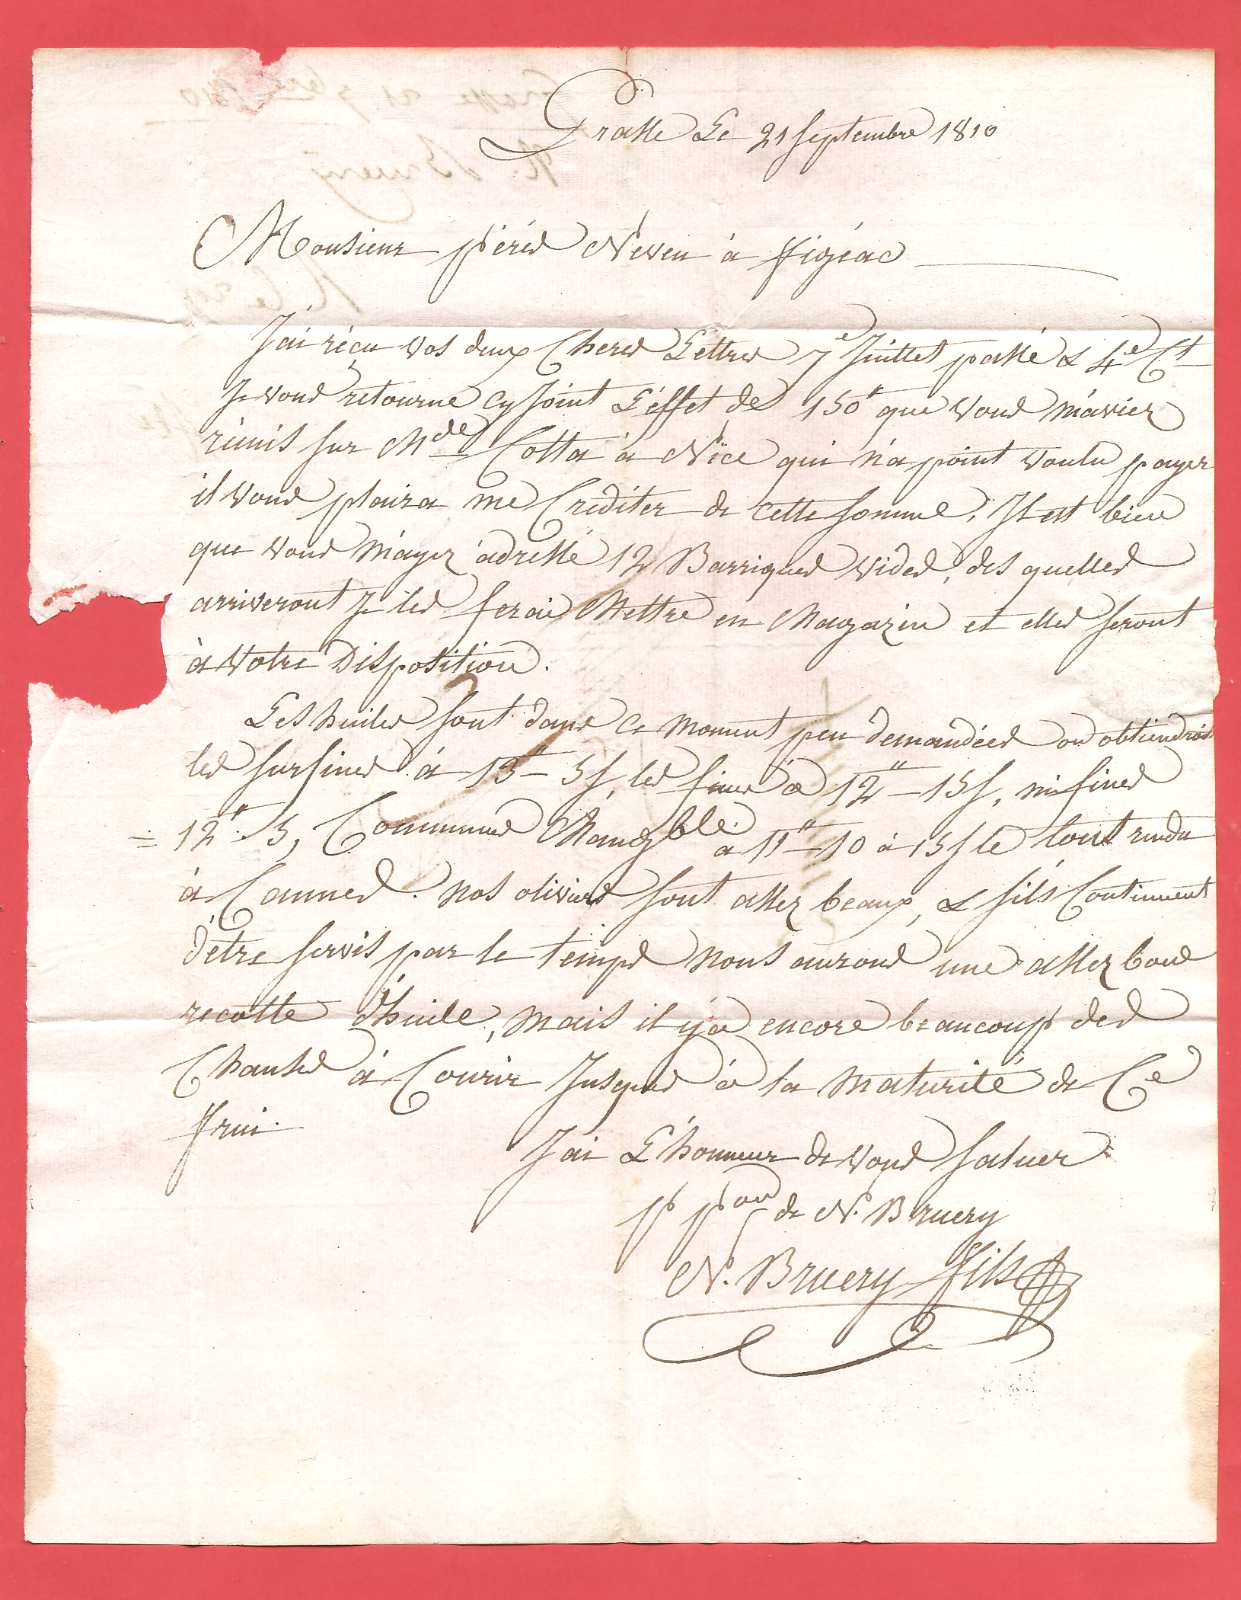 Grasse Le 21 Septembre 1810
Monsieur pérès Neveu à figéac
J'ai réçu vos deux Cheres Lettres 7e Juillet passé & 4e Ct
Je vous retourne cy Joint L'éffet de 150tt que vous m'aviez
rémis sur Mde Cotta à Nice qui n'a point voulu payer
il vous plaira me Crediter de cette somme. Il est bien
que vous m'ayez adressé 12 Barriques vides, dès quelles
arriveront Je les ferai Mettre en Magazin et elles seront
à votre Disposition.
Les huiles sont dans ce moment peu demandées on obtiendroit
les surfines à 13tt - 5s, les fines à 12tt - 15s, mifines
= 12tt - 5, Communes Mangble à 11tt - 10 à 15s le tout rendu
à Cannes. nos oliviers sont assez beaux, & s'ils Continuent
d'être servis par le temps nous aurons une assez bone
recolte d'huile, mais il y a encore beaucoup des
Chanses à Courir Jusques à la maturité de Ce
frui.
J'ai L'honneur de vous saluer
pp on de N. Bruery
N. Bruery fils
Grasse 21 7bre 1810
N. Bruery